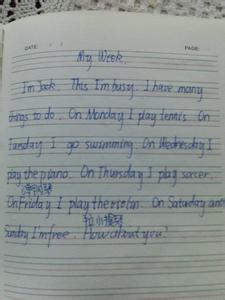 DATE: / /
PAGE:
My Week.
I'm Jack. This I'm busy. I have many
things to do. On Monday I play tennis On
Tuesday I go swimming. On Wednesday I
play the piano. On Thursday I play soccer.
弹钢琴
On Friday I play the On Saturday and
拉小提琴
Sunday I'm free. How about you?